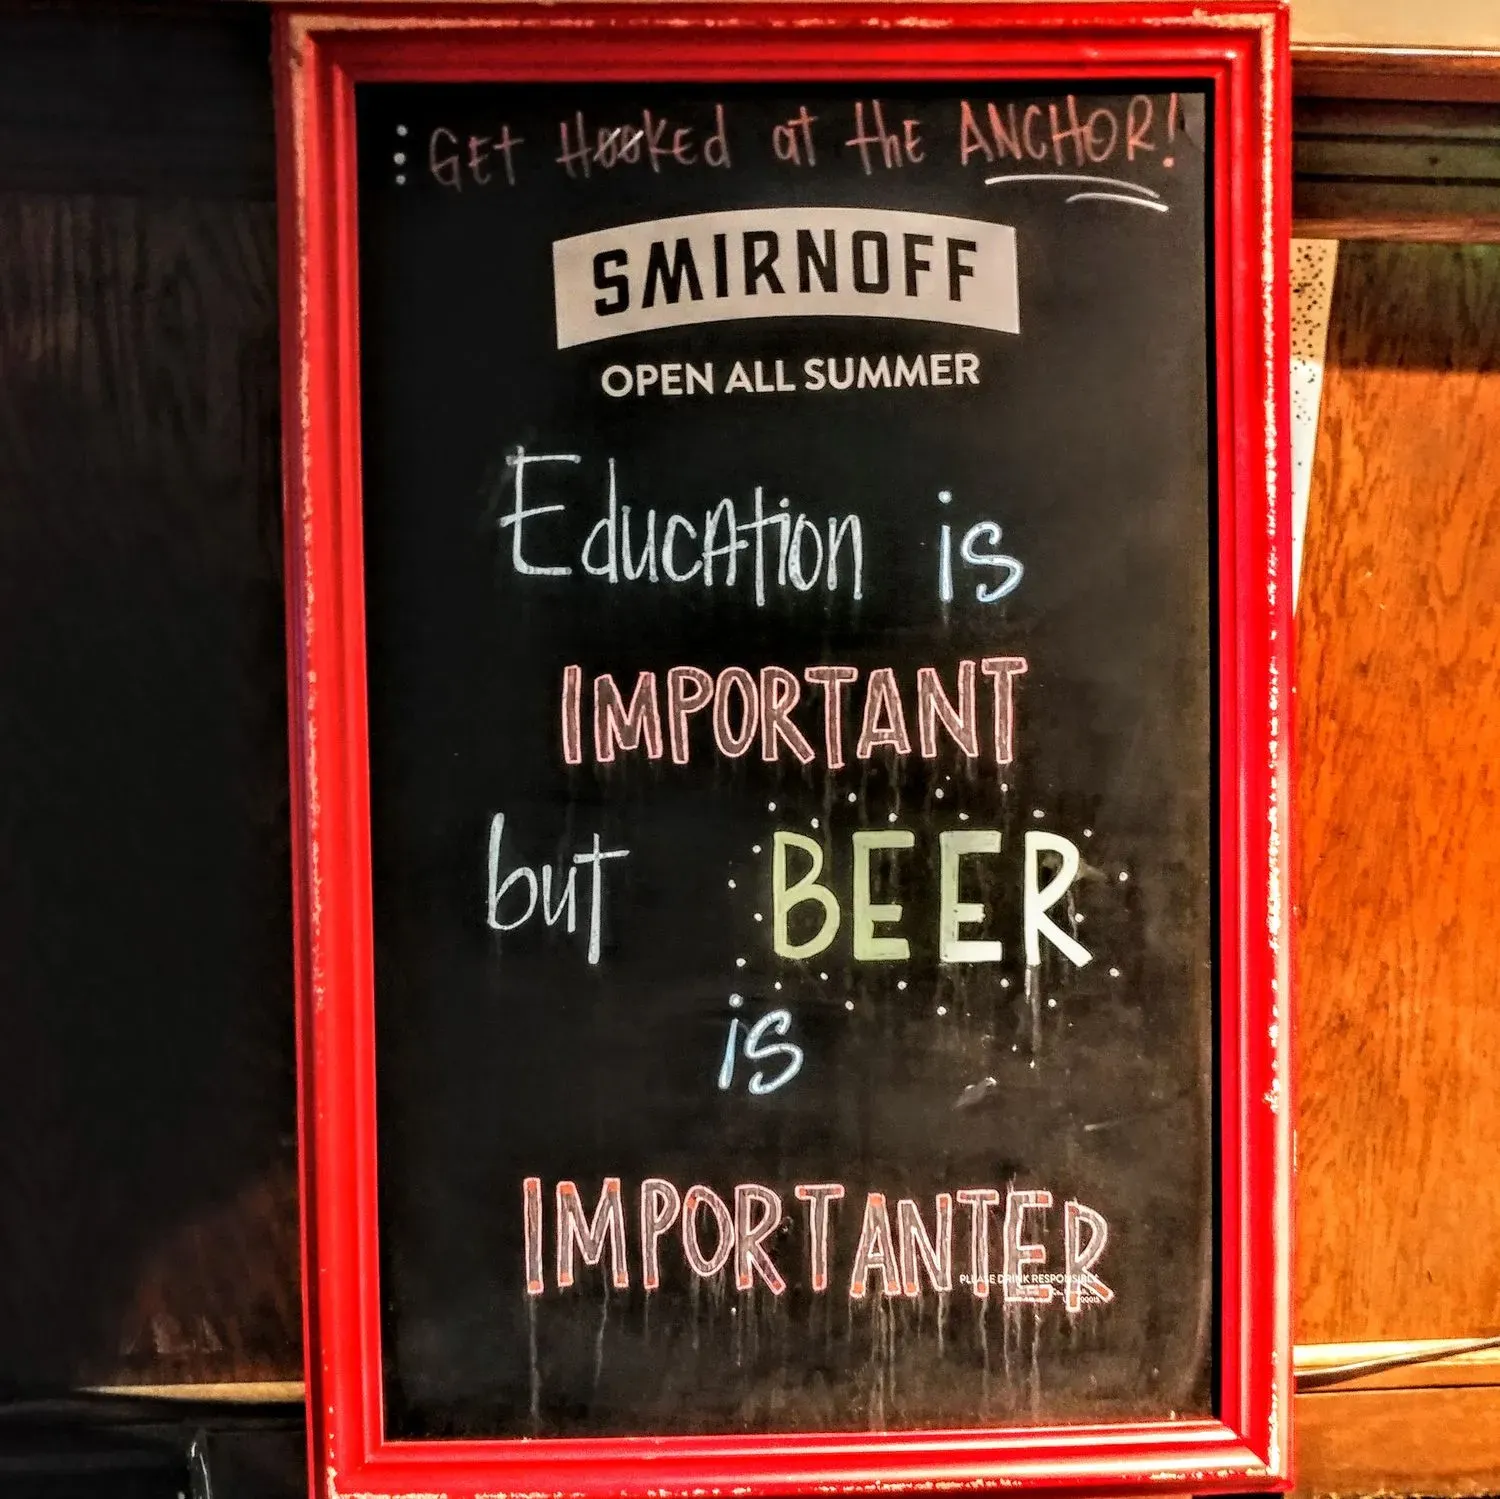 GET HOOKED at the ANCHOR!
SMIRNOFF
OPEN ALL SUMMER
Education is
IMPORTANT
but BEER
is
IMPORTANTER
PLEASE DRINK RESPONSIBLY.